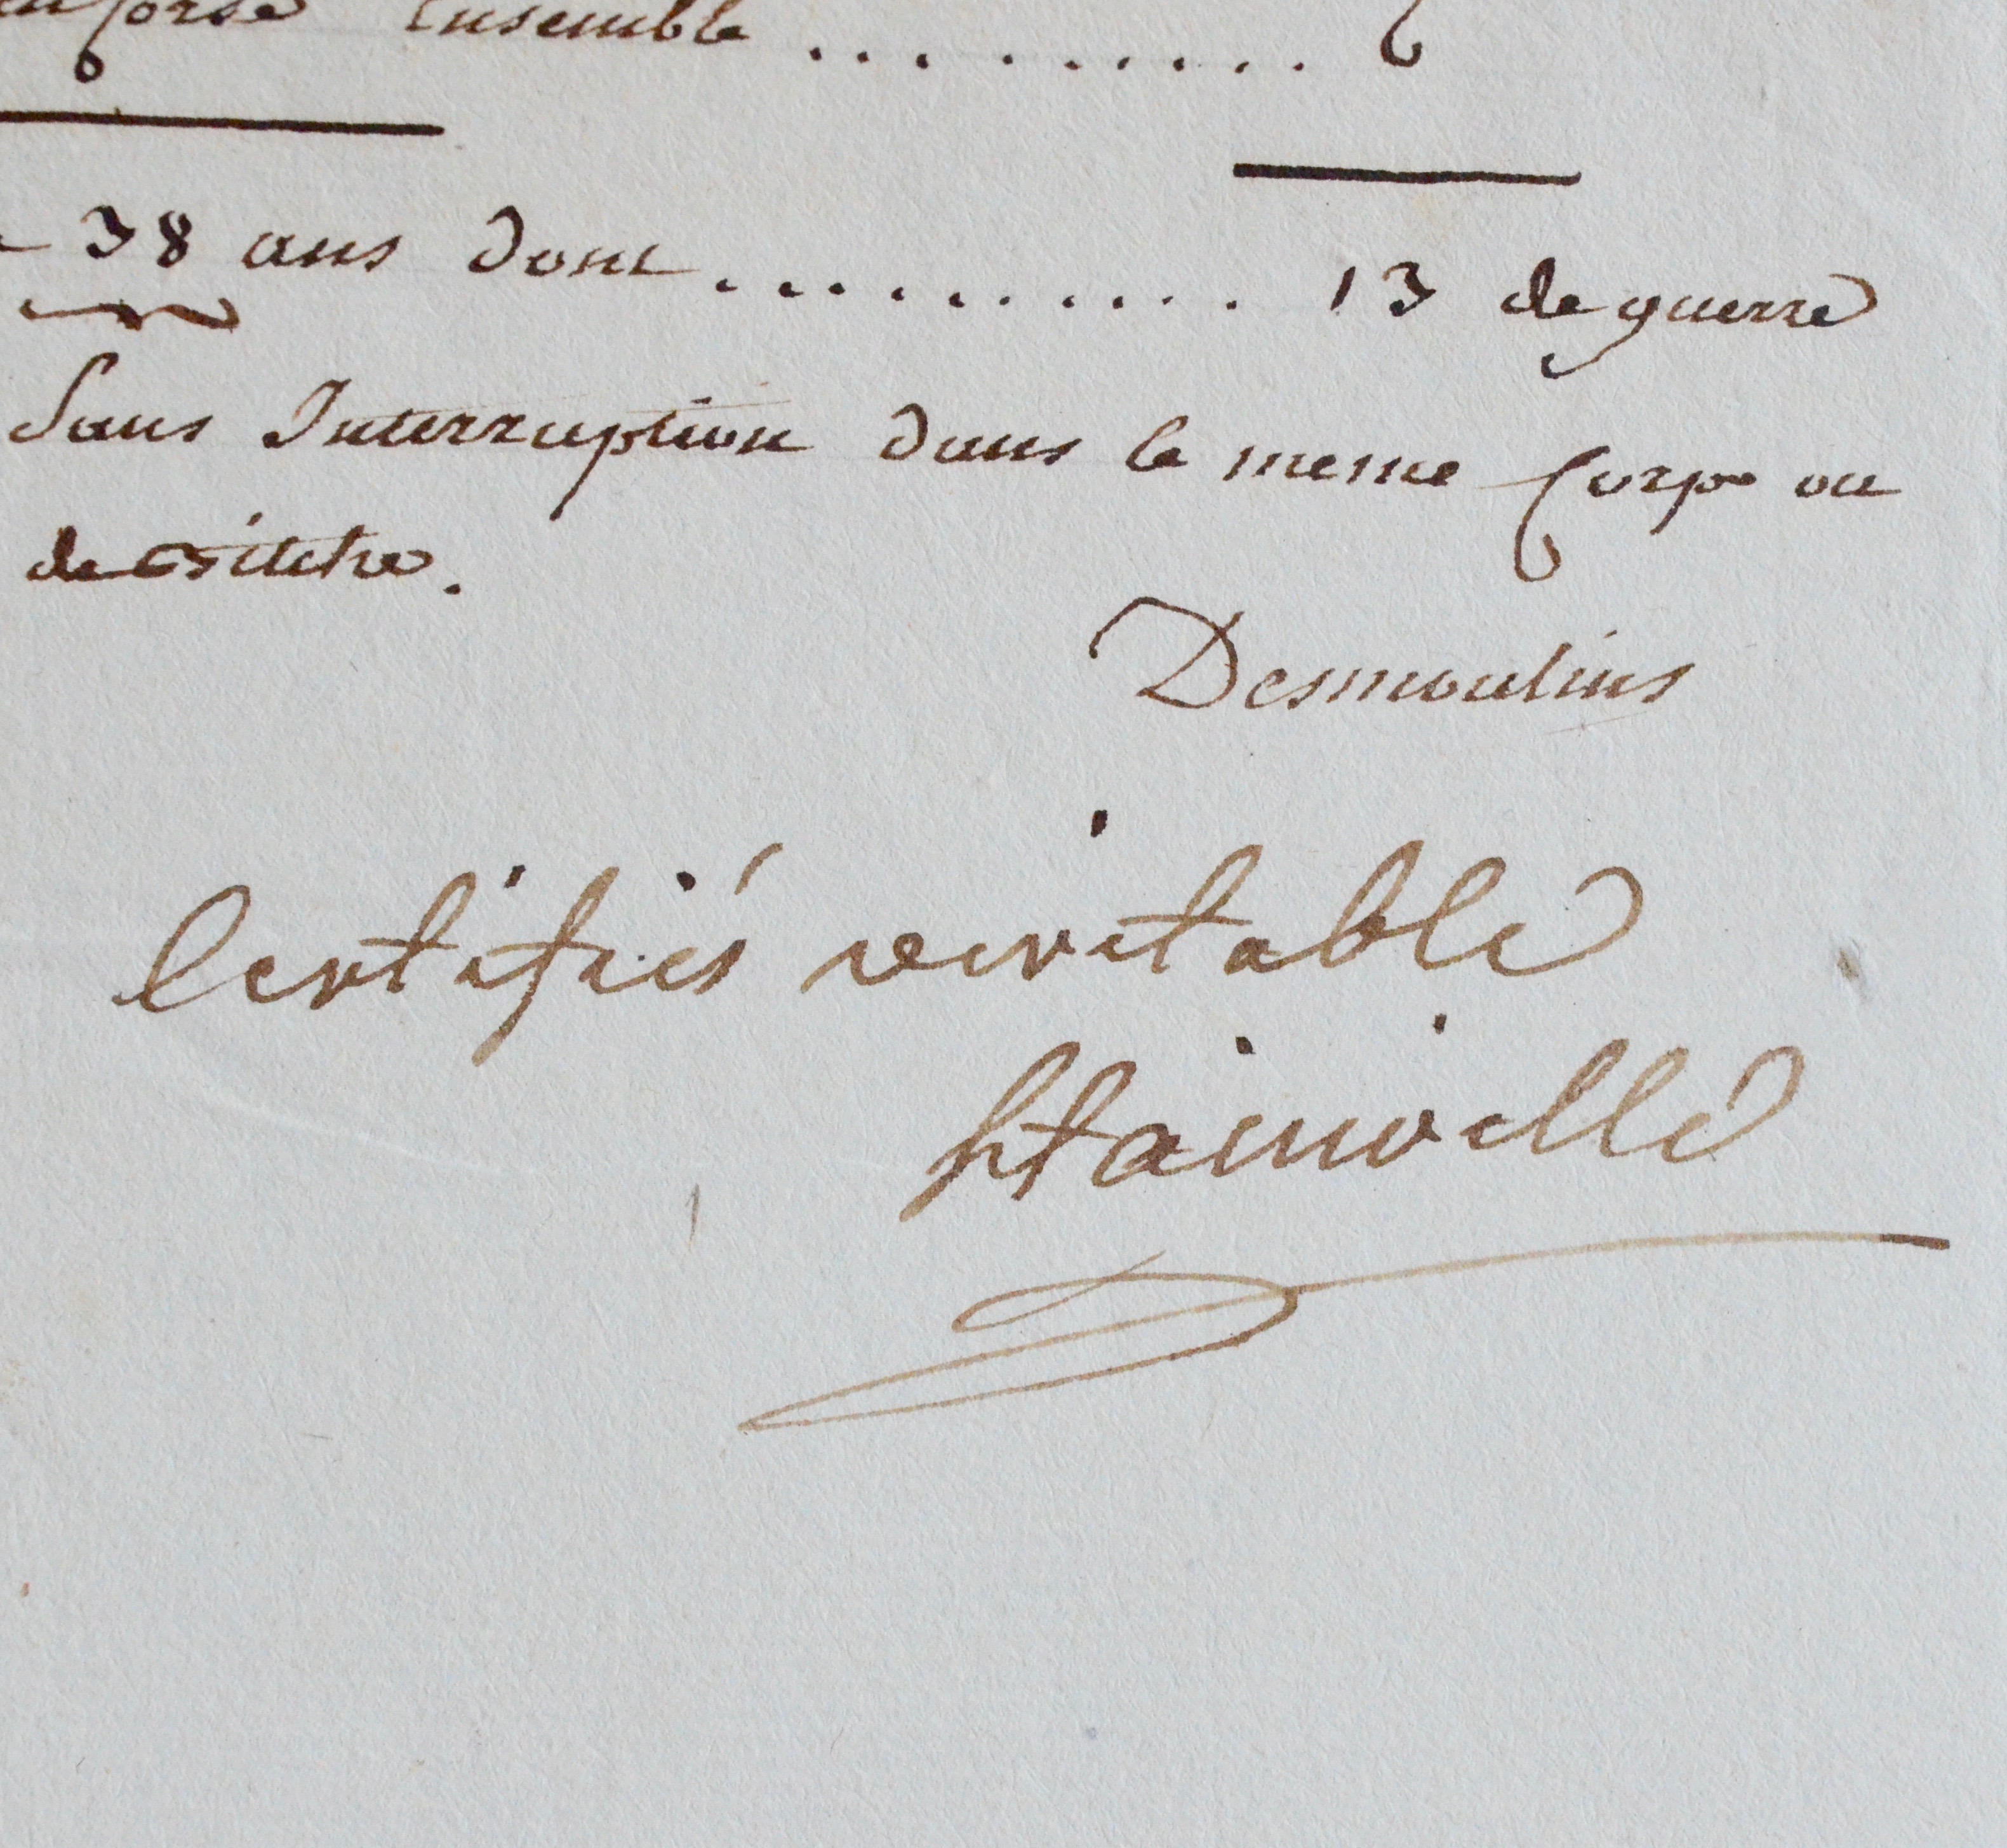 Corse Ensemble .......... 6
38 ans dont .......... 13 de guerre
Sans Interruption dans le meme Corps ou
de Bitche.
Desmoulins
Certifiés veritable
Stainville